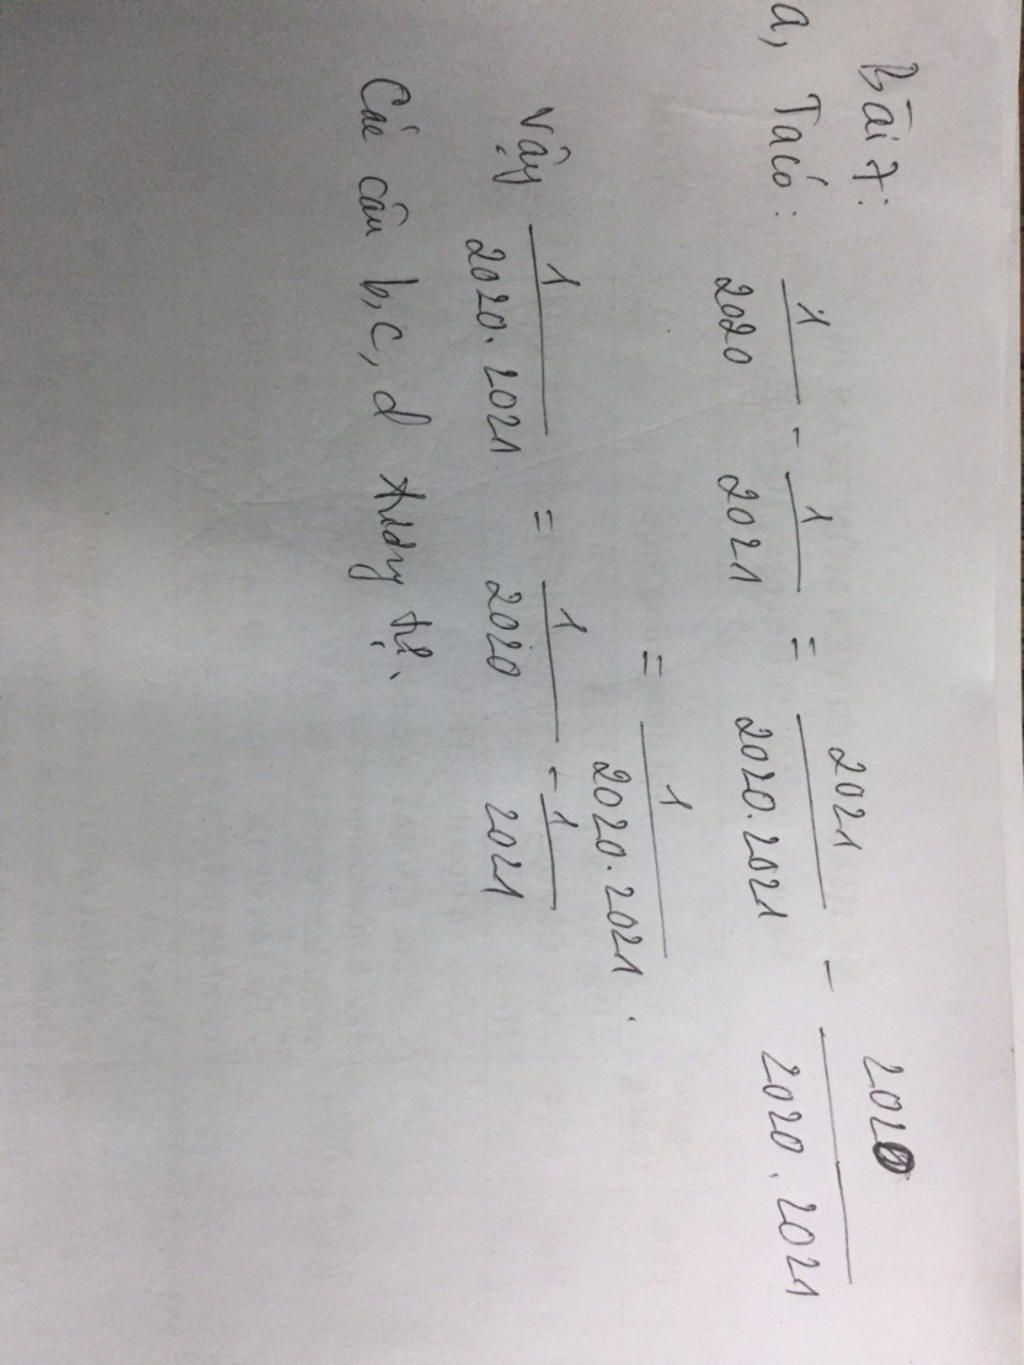 Bài 7:
a, Ta có: 1/2020 - 1/2021 = 2021/2020.2021 - 2020/2020.2021
= 1/2020.2021.
Vậy 1/2020.2021 = 1/2020 - 1/2021
Các câu b, c, d tương tự.